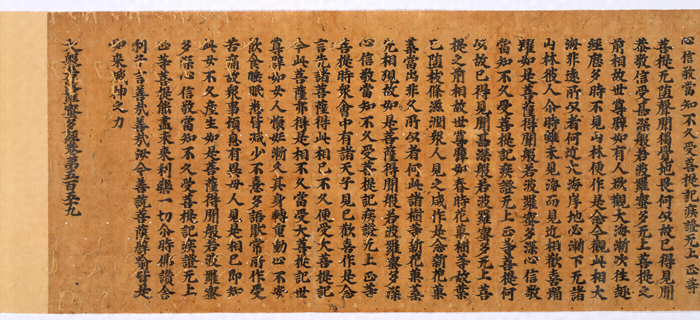 心信敬當知不久受菩提記疾證无上正等
菩提无墮聲聞獨覺地畏何以故已得見聞
恭敬信受甚深般若波羅蜜多无上菩提之
前相故世尊譬如有人欲觀大海漸次往趣
經歷多時不見山林便作是念今觀此相大
海非遠所以者何近大海岸地必漸下无諸
山林彼人尒時雖未見海而見近相歡喜踊
躍如是菩薩得聞般若波羅蜜多深心信敬
當知不久受菩提記疾證无上正等菩提何
以故已得見聞甚深般若波羅蜜多无上菩
提之前相故世尊譬如春時花菓樹等故葉
已墮枝條滋潤衆人見之咸作是念新花菓
葉當出非久所以者何此諸樹等新花菓葉
先相現故如是菩薩得聞般若波羅蜜多深
心信敬當知不久受菩提記疾證无上正等
菩提時衆會中有諸天子見已歡喜作是念
言先諸菩薩得此相已不久便受大菩提記
今此菩薩亦得是相不久當受大菩提記世
尊譬如女人懷妊漸久其身轉重動止不安
飲食睡眠悉皆減少不憙多語猒常所作受
苦痛故衆事頓息有異母人見是相已即知
此女不久產生如是菩薩得聞般若波羅蜜
多深心信敬當知不久受菩提記疾證无上
正等菩提能盡未來利樂一切尒時佛讚舍
利子言善哉善哉汝今善說菩薩譬喻皆是
如來威神之力
大般若波羅蜜多經卷第五百五十九